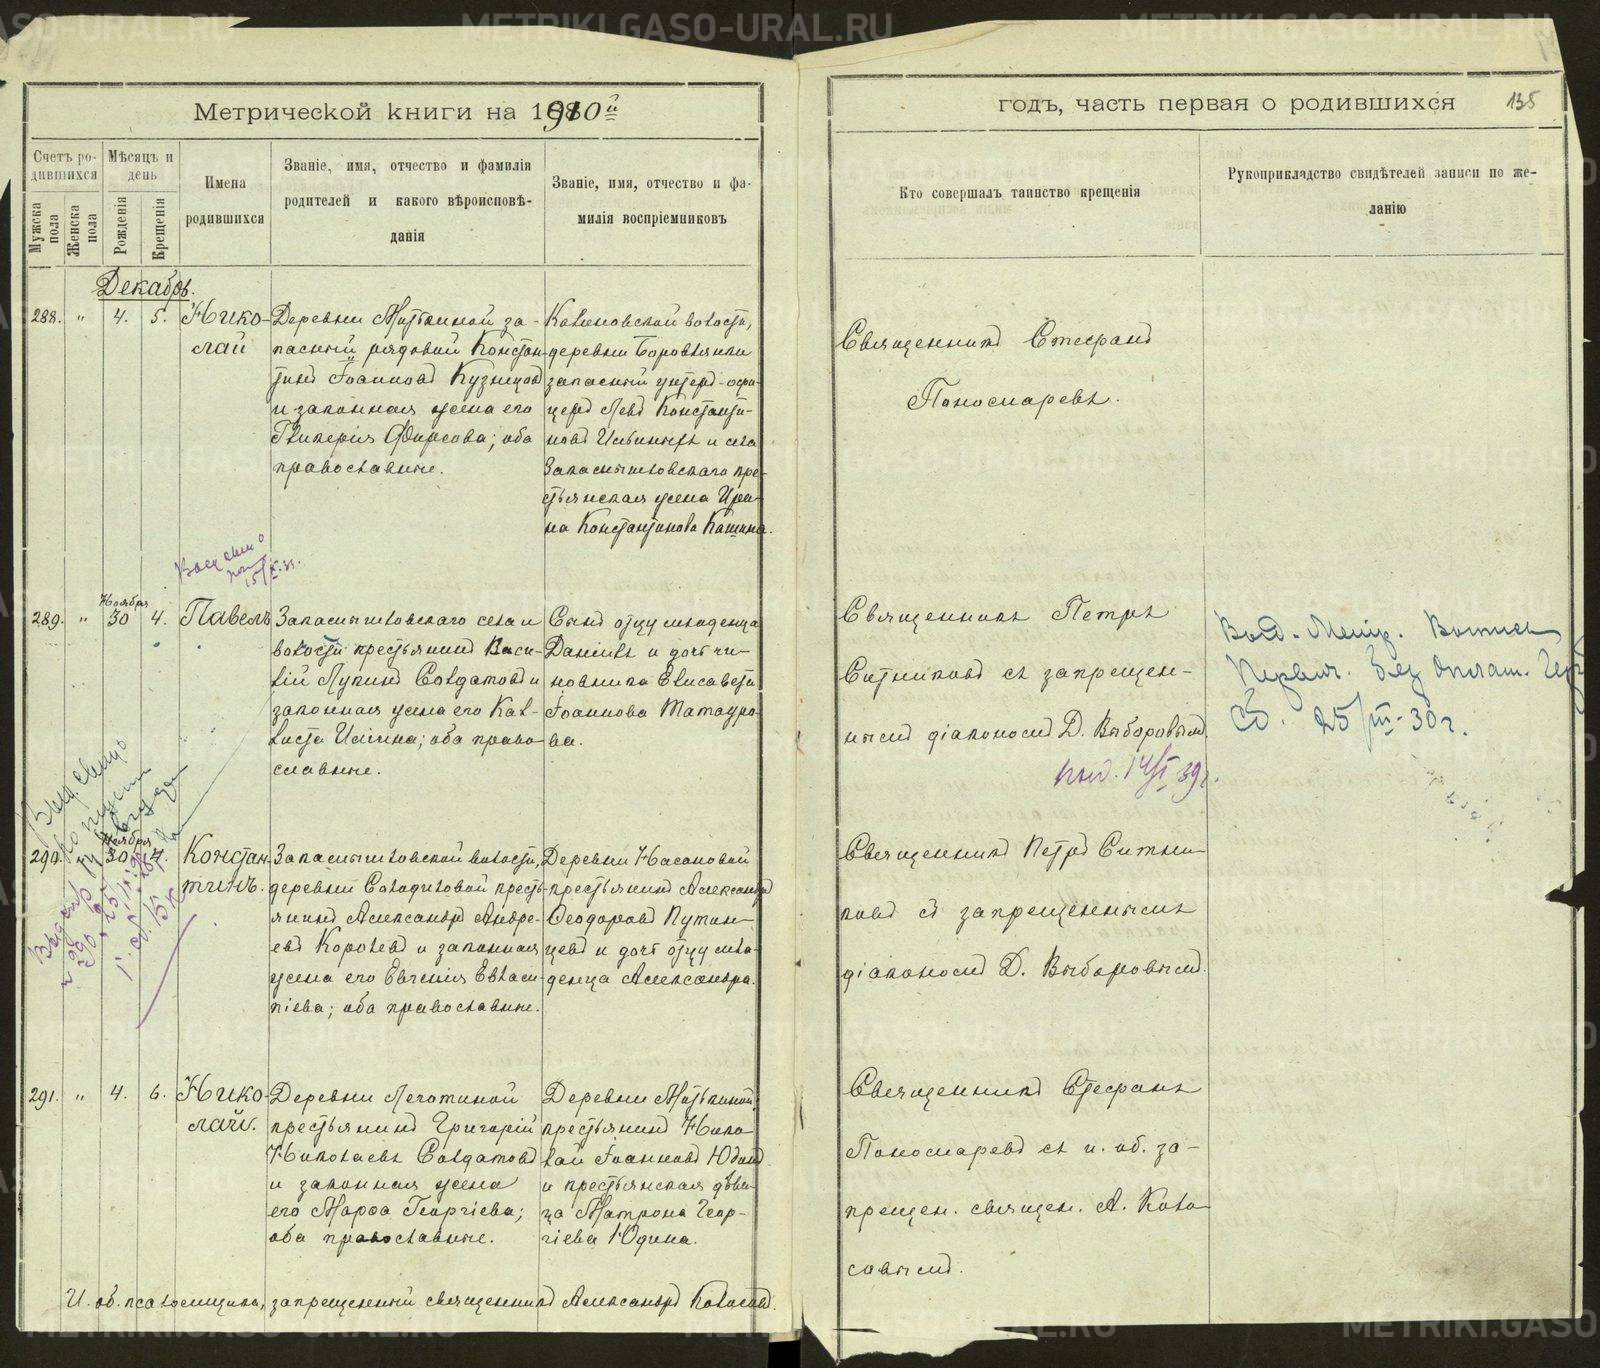 Метрической книги на 1910й
годъ, часть первая о родившихся
135
Счетъ ро-
дившихся
Мужска пола
Женска пола
Мѣсяцъ и
день
Рожденія
Крещенія
Имена
родившихся
Званіе, имя, отчество и фамилія
родителей и какого вѣроисповѣ-
данія
Званіе, имя, отчество и фа-
милія воспріемниковъ
Кто совершалъ таинство крещенія
Рукоприкладство свидѣтелей записи по же-
ланію
Декабрь.
288. " 4. 5.
Нико-
лай
Деревни Мыткиной за-
пасный рядовой Констан-
тинъ Іоанновъ Кузнецовъ
и законная жена его
Гликерія Фирсова; оба
православные.
деревни Боровлянки
запасный унтеръ-офи-
церъ Левъ Константи-
новъ Ильиныхъ и села
кре-
стьянская жена Ири-
на Константинова Кашина.
Священникъ Стефанъ
Пономаревъ.
289. " Ноября 30 4.
Павелъ
села и
волости крестьянинъ Васи-
лій Лукинъ Солдатовъ и
законная жена его Кал-
листа Ильина; оба право-
славные.
Сынъ отцу младенца
Даніилъ и дочь чи-
новника Елисавета
Іоаннова Татауро-
ва.
Священникъ Петръ
Ситниковъ съ запрещен-
нымъ діакономъ Д. Выборовымъ.
25/III-30г.
290. " Ноября 30
Констан-
тинъ.
волости,
деревни Солодиловой кресть-
янинъ Александръ Андре-
евъ Королевъ и законная
жена его Евгенія Евлам-
піева; оба православные.
Деревни Насоновой
крестьянинъ Александръ
Ѳеодоровъ Путин-
цевъ и дочь отцу мла-
денца Александра.
Священникъ Петръ Ситни-
ковъ съ запрещеннымъ
діакономъ Д. Выборовымъ.
291. " 4. 6.
Нико-
лай.
Деревни Леготиной
крестьянинъ Григорій
Николаевъ Солдатовъ
и законная жена
его Марѳа Георгіева;
оба православные.
Деревни Мыткиной
крестьянинъ Нико-
лай Іоанновъ Юдинъ
и крестьянская дѣви-
ца Матрона Геор-
гіева Юдина.
Священникъ Стефанъ
Пономаревъ съ и. об. за-
прещен. священ. А. Коло-
совымъ.
И. об. псаломщика, запрещенный священникъ Александръ Колосовъ.
METRIKI.GASO-URAL.RU